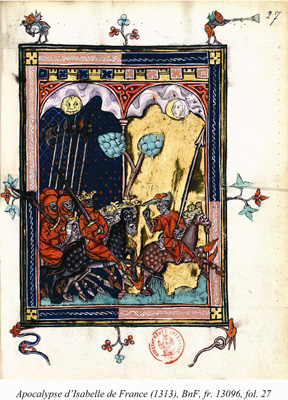 27
Apocalypse d'Isabelle de France (1313), BnF, fr. 13096, fol. 27